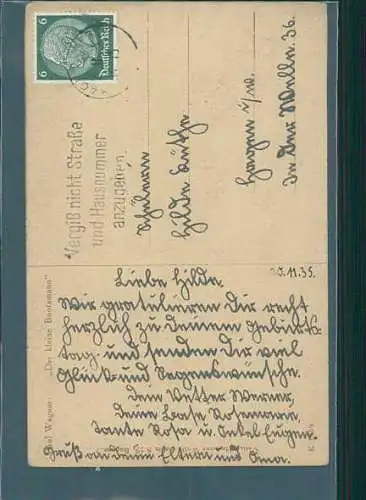 6
Deutsches Reich
6
Vergiß nicht Straße
und Hausnummer
anzugeben
Schülerin
Hilde Küthe
Hagen i/W.
In der Welle 36.
„Der kleine Bootsmann"
Wagner:
29.11.35.
Liebe Hilde.
Wir gratulieren Dir recht
herzlich zu deinem Geburts-
tag und senden Dir viel
Glück- und Segenswünsche.
Dein Vetter Werner,
Deine Base Rosemarie,
Tante Rosa u. Onkel Eugen.
Gruß an deine Eltern und Oma.